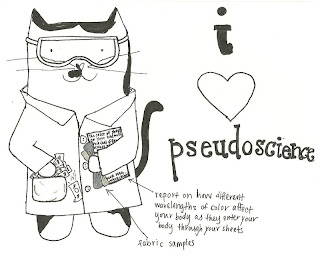 i
pseudoscience
report on how different
wavelengths of color affect
your body as they enter your
body through your sheets
fabric samples